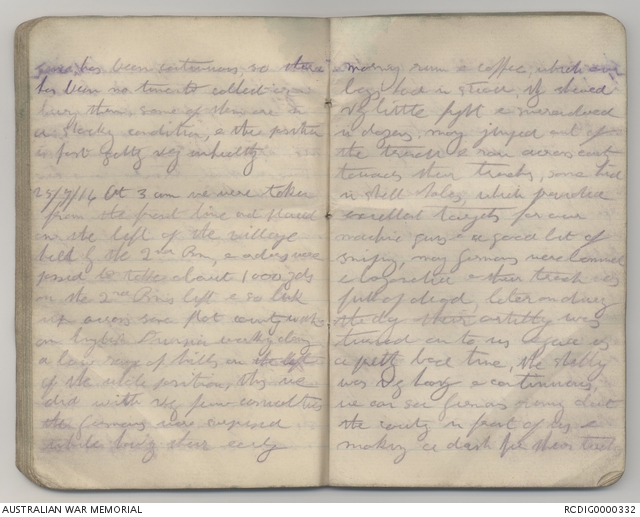 has been continuous, so there
has been no time to collect or
bury them, some of them are in
a condition, & the position
is fast getting very unhealthy.
25/7/16 At 3 am we were taken
from the front line and placed
on the left of the village
held by the 2nd Bn, & orders were
passed to take about 1000 yds
on the 2nd Bn's left & so link
up across some flat country with
an English Division working along
a low range of hills on the left
of the whole position, this we
did with very few casualties
the Germans were surprised
while having their early
morning rum & coffee, which our
boys had in stead, they showed
very little fight & surrendered
in dozens, many jumped out of
the trench & ran across
towards their trenches, some hid
in shell holes, which provided
excellent targets for our
machine guns & a good bit of
sniping, many Germans were
& their trench was
full of dead, later on during
the day their artillery was
turned on to us & gave us
a pretty bad time, the shelling
was very heavy & continuous,
we can see Germans along
the country in front of us &
making a dash for their trench
AUSTRALIAN WAR MEMORIAL
RCDIG0000332